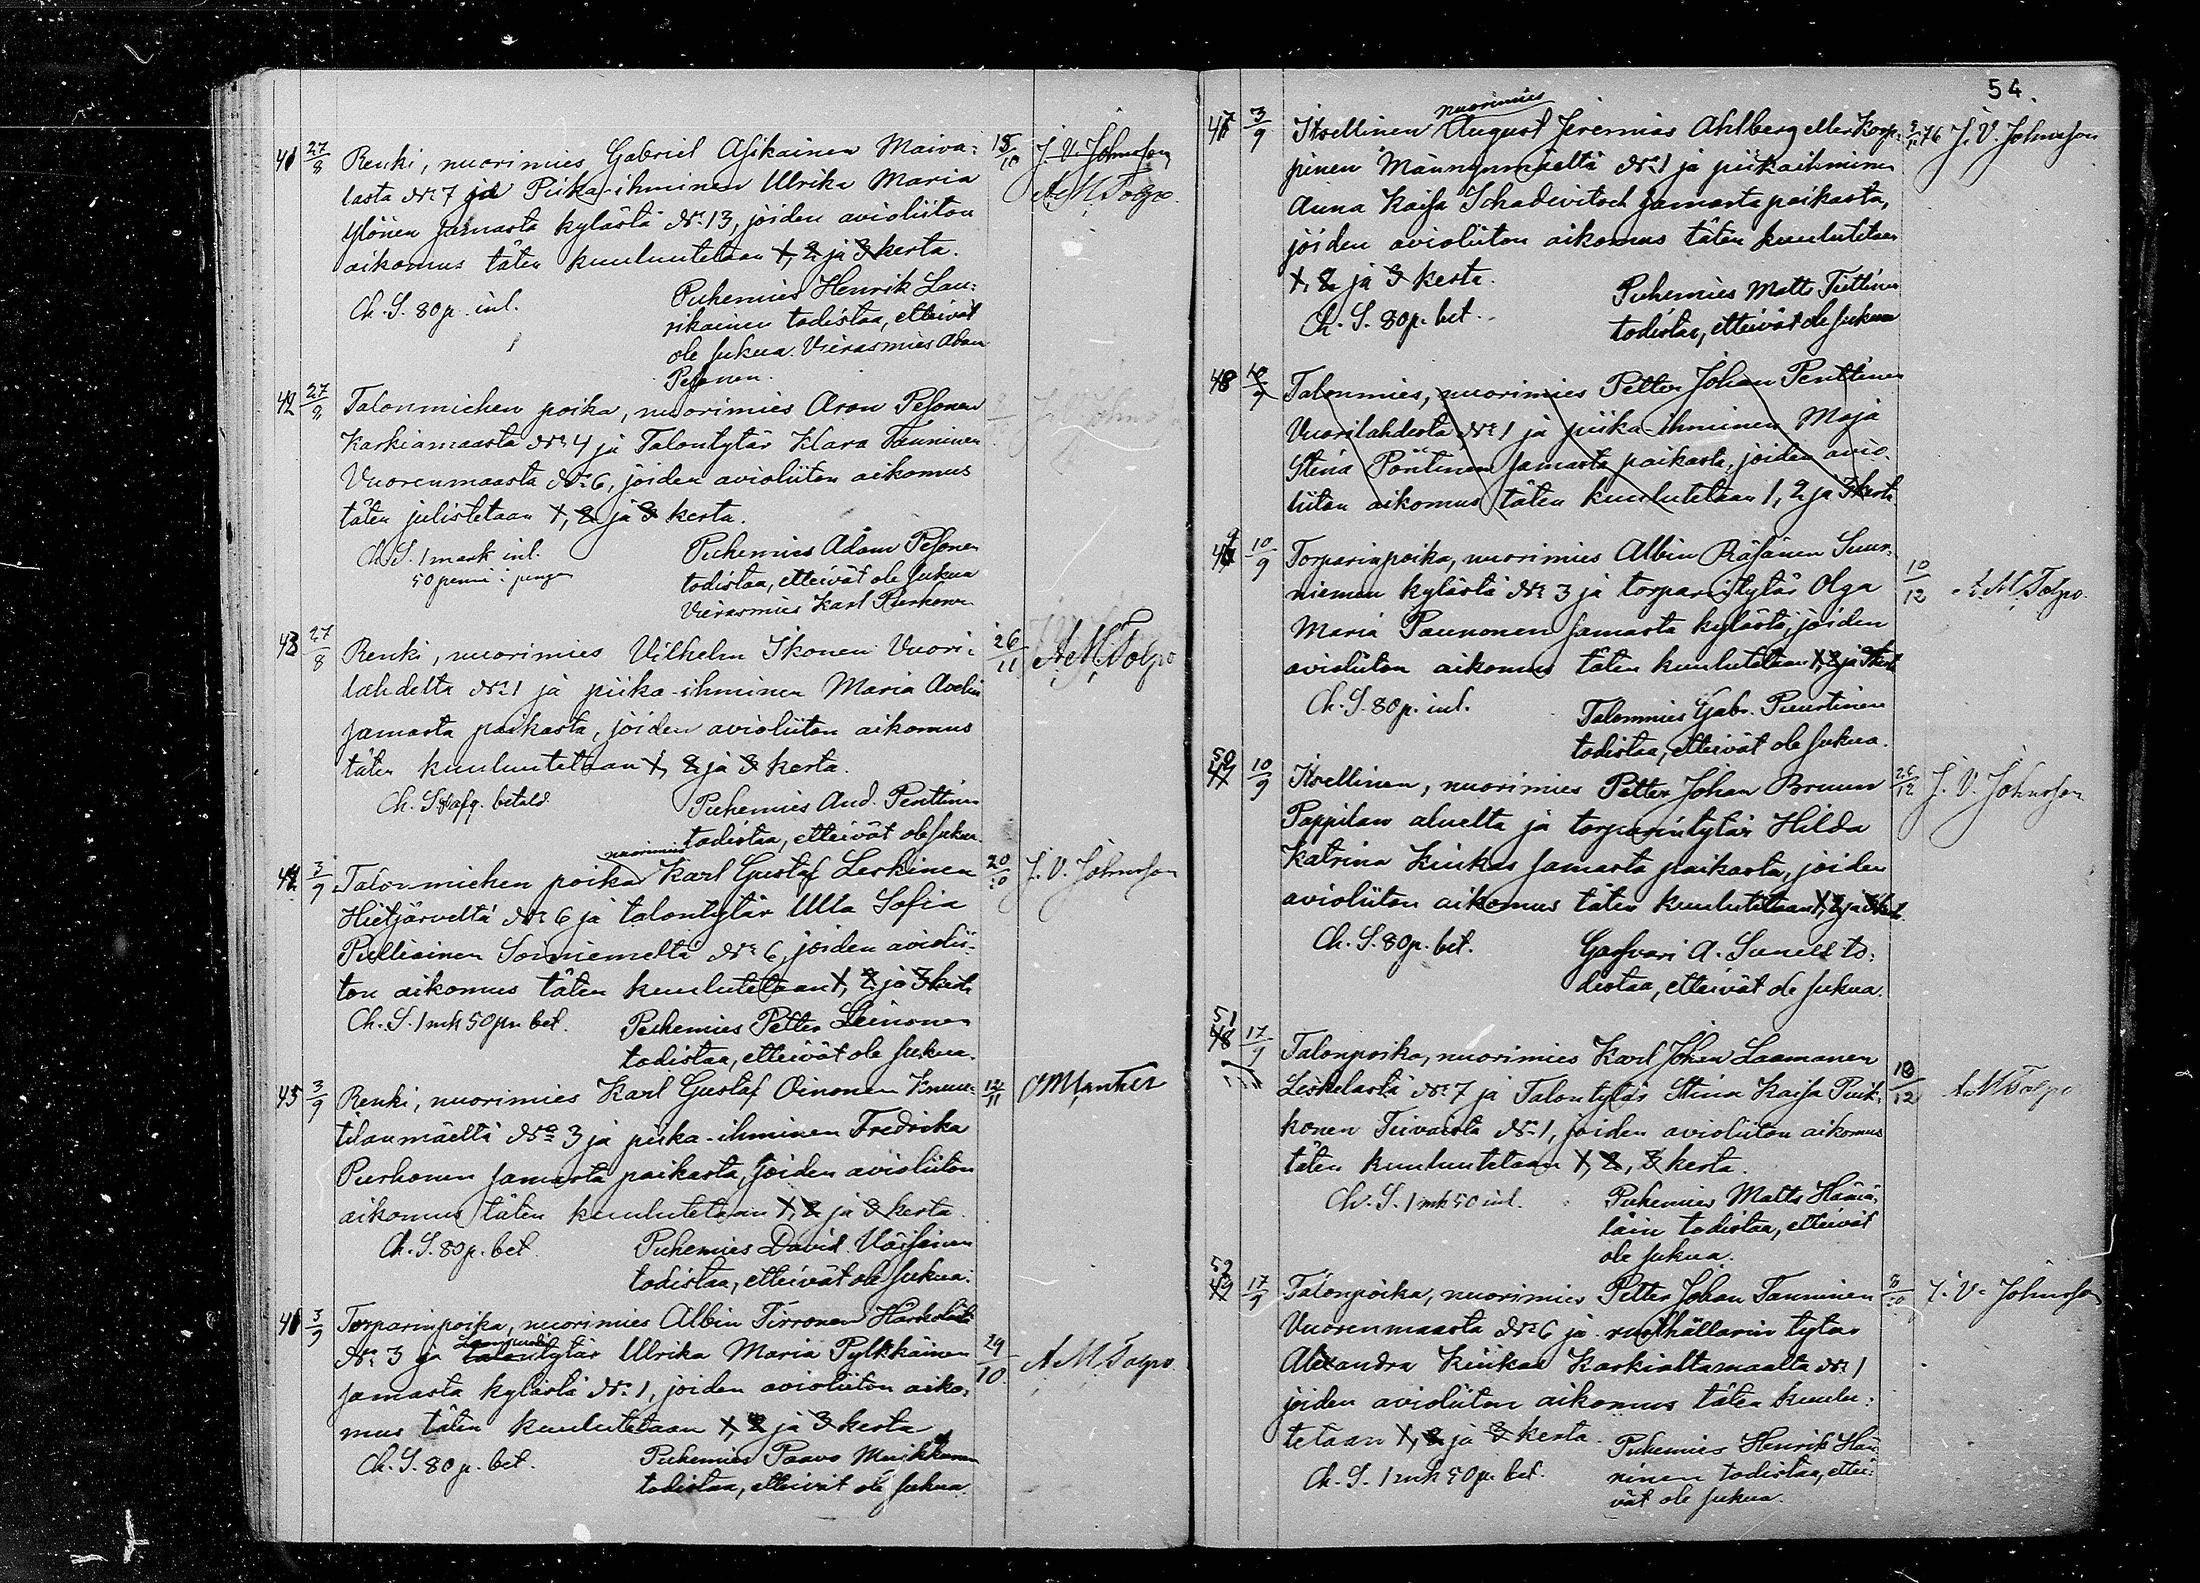 41 27/8 Renki, nuorimies Gabriel Asikainen Maiva- 15/10 J. V. Johnsson
lasta No 7 ja Piika-ihminen Ulrika Maria A. M. Tolpo.
Ylönen samasta kylästä No 13, joiden avioliiton
aikomus täten kuulutetaan 1, 2 ja 3 kerta.
Ch. S. 80 p. inl. Puhemies Henrik Lau-
rikainen todistaa, etteivät
ole sukua. Vierasmies Adam
Pesonen.
42 27/8 Talonmiehen poika, nuorimies Aron Pesonen
Karkiamaasta No 4 ja Talontytär Klara Tanninen
Vuorenmaasta No 6, joiden avioliiton aikomus
täten julistetaan 1, 2 ja 3 kerta.
Ch. S. 1 mark inl. Puhemies Adam Pesonen
50 penni i todistaa, etteivät ole sukua
Vierasmies Karl
43 27/8 Renki, nuorimies Vilhelm Ikonen Vuori- 26/11 A. M. Tolpo
lahdelta No 1 ja piika-ihminen Maria Avelin
samasta paikasta, joiden avioliiton aikomus
täten kuulutetaan 1, 2 ja 3 kerta.
Ch. S. betald Puhemies And. Penttinen
todistaa, etteivät ole sukua.
nuorimies
44 3/9 Talonmiehen poika Karl Gustaf Leskinen 20/10 J. V. Johnsson
Hietjärveltä No 6 ja talontytär Ulla Sofia
Pulliainen Soinniemeltä No 6, joiden aviolii-
ton aikomus täten kuulutetaan 1, 2 ja 3 kerta
Ch. S. 1 mk 50 pn. bet. Puhemies Petter Leinonen
todistaa, etteivät ole sukua.
45 3/9 Renki, nuorimies Karl Gustaf Oinonen Knuu- 12/11 O Manther
tilanmäeltä No 3 ja piika-ihminen Fredrika
Purhonen samasta paikasta, joiden avioliiton
aikomus täten kuulutetaan 1, 2 ja 3 kerta.
Ch. S. 80 p. bet. Puhemies David Väisänen
todistaa, etteivät ole sukua.
46 3/9 Torparinpoika, nuorimies Albin Tirronen
No 3 ja talontytär Ulrika Maria Pylkkäinen 29/10 A. M. Tolpo.
samasta kylästä No 1, joiden avioliiton aiko-
mus täten kuulutetaan 1, 2 ja 3 kerta
Ch. S. 80 p. bet. Puhemies Paavo Muikkonen
todistaa, etteivät ole sukua.
54.
nuorimies
47 3/9 Itsellinen August Jeremias Ahlberg eller Korp- 76 J. V. Johnsson
pinen Männynmäeltä No 1 ja piikaihminen
Anna Kaisa Schadevitsch samasta paikasta,
joiden avioliiton aikomus täten kuulutetaan
1, 2 ja 3 kerta. Puhemies Matts Tiettinen
Ch. S. 80 p. bet. todistaa, etteivät ole sukua
48 10/9 Talonmies, nuorimies Petter Johan Penttinen
Vuorilahdesta No 1 ja piika ihminen Maja
Stina Pöntinen samasta paikasta, joiden avio-
liiton aikomus täten kuulutetaan 1, 2 ja 3 kerta.
49 10/9 Torparinpoika, nuorimies Albin Räsänen Suur-
niemen kylästä No 3 ja torparitytär Olga 10/12 A. M. Tolpo.
Maria Paunonen samasta kylästä, joiden
avioliiton aikomus täten kuulutetaan 1, 2 ja 3 kerta
Ch. S. 80 p. inl. Talonmies Gabr. Puustinen
todistaa, etteivät ole sukua.
50 47 10/9 Itsellinen, nuorimies Petter Johan Bruun 26/12 J. V. Johnsson
Pappilan aluelta ja torparintytär Hilda
Katrina Kiukas samasta paikasta, joiden
avioliiton aikomus täten kuulutetaan 1, 2 ja 3 kert.
Ch. S. 80 p. bet. A. Sunell to-
distaa, etteivät ole sukua.
51
48 17/9 Talonpoika, nuorimies Karl Johan Laamanen
Liskelasta No 7 ja Talontytär Stina Kaisa Pauk- 10/12 A. M. Tolpo
konen Tiivaista No 1, joiden avioliiton aikomus
täten kuulutetaan 1, 2, 3 kerta.
Ch. S. 1 mk 50 inl. Puhemies Matts Hämä-
läin todistaa, etteivät
ole sukua.
52
49 17/9 Talonpoika, nuorimies Petter Johan Tanninen 8/10 J. V. Johnsson
Vuorenmaasta No 6 ja rusthållarin tytär
Alexandra Kiukas Karkialtamaalta No 1
joiden avioliiton aikomus täten kuulu-
tetaan 1, 2 ja 3 kerta. Puhemies Henrik Hän-
Ch. S. 1 mk 50 p. bet. ninen todistaa, ettei-
vät ole sukua.